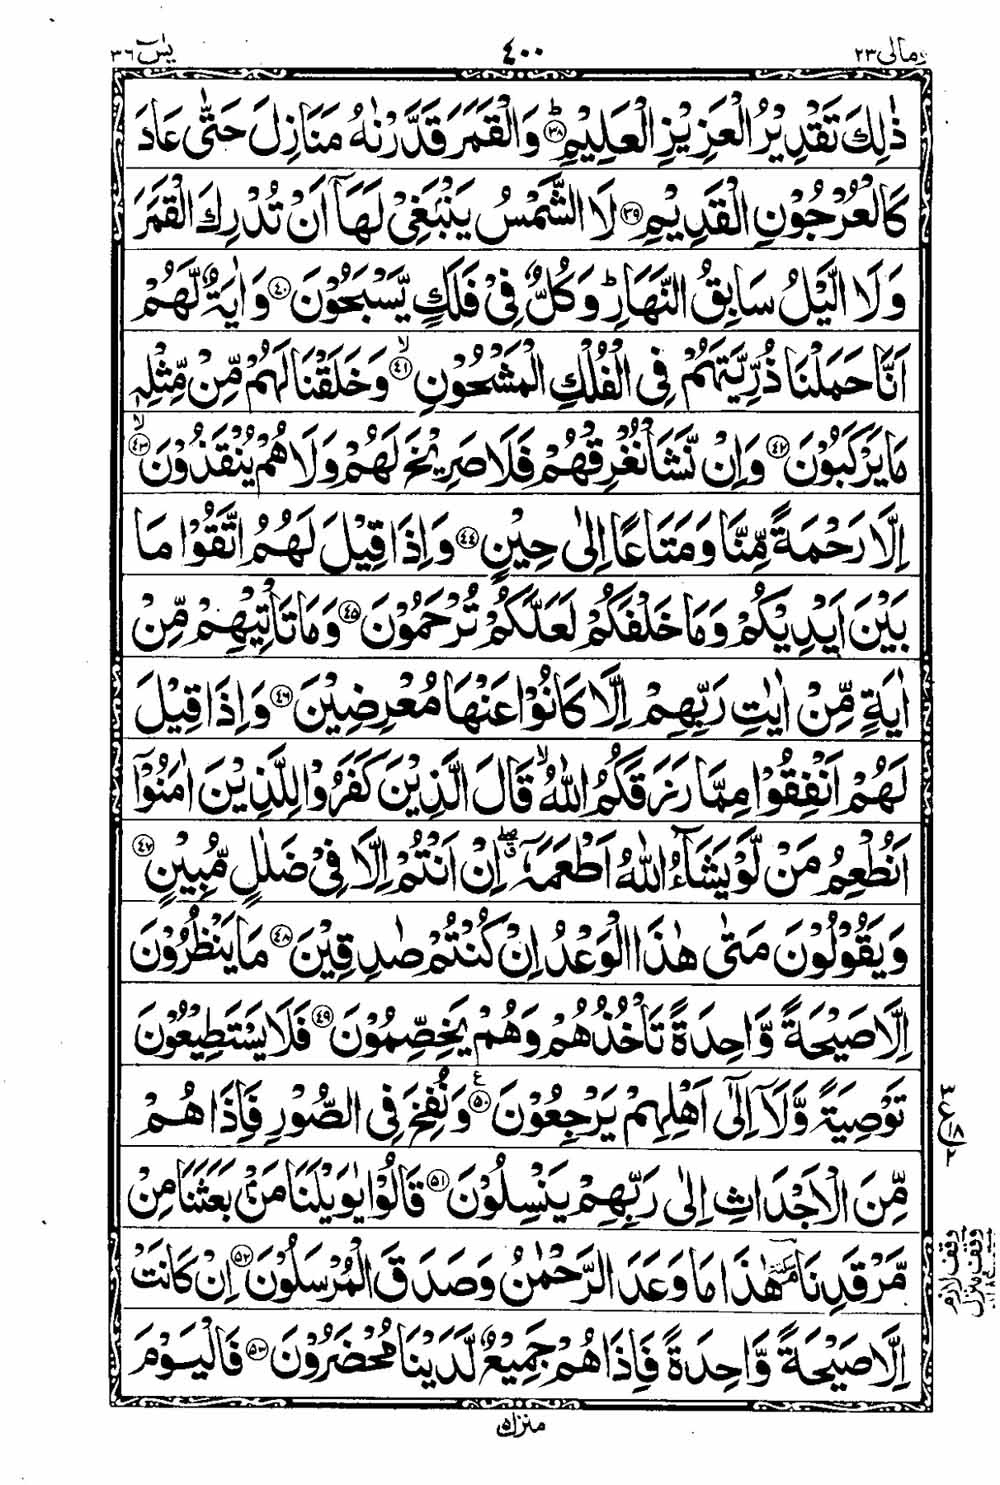 ومالی ۲۳ ۴۰۰ یٰسٓ ۳۶
ذٰلِكَ تَقْدِيْرُ الْعَزِيْزِ الْعَلِيْمِؕ ﴿۳۸﴾ وَالْقَمَرَ قَدَّرْنٰهُ مَنَازِلَ حَتّٰى عَادَ
كَالْعُرْجُوْنِ الْقَدِيْمِ ﴿۳۹﴾ لَا الشَّمْسُ يَنْۢبَغِىْ لَهَاۤ اَنْ تُدْرِكَ الْقَمَرَ
وَلَا الَّيْلُ سَابِقُ النَّهَارِؕ وَكُلٌّ فِىْ فَلَكٍ يَّسْبَحُوْنَ ﴿۴۰﴾ وَاٰيَةٌ لَّهُمْ
اَنَّا حَمَلْنَا ذُرِّيَّتَهُمْ فِى الْفُلْكِ الْمَشْحُوْنِۙ ﴿۴۱﴾ وَخَلَقْنَا لَهُمْ مِّنْ مِّثْلِهٖ
مَا يَرْكَبُوْنَ ﴿۴۲﴾ وَاِنْ نَّشَاْ نُغْرِقْهُمْ فَلَا صَرِيْخَ لَهُمْ وَلَا هُمْ يُنْقَذُوْنَۙ ﴿۴۳﴾
اِلَّا رَحْمَةً مِّنَّا وَمَتَاعًا اِلٰى حِيْنٍ ﴿۴۴﴾ وَاِذَا قِيْلَ لَهُمُ اتَّقُوْا مَا
بَيْنَ اَيْدِيْكُمْ وَمَا خَلْفَكُمْ لَعَلَّكُمْ تُرْحَمُوْنَ ﴿۴۵﴾ وَمَا تَاْتِيْهِمْ مِّنْ
اٰيَةٍ مِّنْ اٰيٰتِ رَبِّهِمْ اِلَّا كَانُوْا عَنْهَا مُعْرِضِيْنَ ﴿۴۶﴾ وَاِذَا قِيْلَ
لَهُمْ اَنْفِقُوْا مِمَّا رَزَقَكُمُ اللّٰهُۙ قَالَ الَّذِيْنَ كَفَرُوْا لِلَّذِيْنَ اٰمَنُوْۤا
اَنُطْعِمُ مَنْ لَّوْ يَشَآءُ اللّٰهُ اَطْعَمَهٗۤ ۖ ق اِنْ اَنْتُمْ اِلَّا فِىْ ضَلٰلٍ مُّبِيْنٍ ﴿۴۷﴾
وَيَقُوْلُوْنَ مَتٰى هٰذَا الْوَعْدُ اِنْ كُنْتُمْ صٰدِقِيْنَ ﴿۴۸﴾ مَا يَنْظُرُوْنَ
اِلَّا صَيْحَةً وَّاحِدَةً تَاْخُذُهُمْ وَهُمْ يَخِصِّمُوْنَ ﴿۴۹﴾ فَلَا يَسْتَطِيْعُوْنَ
تَوْصِيَةً وَّلَاۤ اِلٰٓى اَهْلِهِمْ يَرْجِعُوْنَ ﴿۵۰﴾ ع وَنُفِخَ فِى الصُّوْرِ فَاِذَا هُمْ
۳ ع ۱۸ ۲
مِّنَ الْاَجْدَاثِ اِلٰى رَبِّهِمْ يَنْسِلُوْنَ ﴿۵۱﴾ قَالُوْا يٰوَيْلَنَا مَنْۢ بَعَثَنَا مِنْ
مَّرْقَدِنَا م سكتة هٰذَا مَا وَعَدَ الرَّحْمٰنُ وَصَدَقَ الْمُرْسَلُوْنَ ﴿۵۲﴾ اِنْ كَانَتْ
وقف لازم
وقف منزل
اِلَّا صَيْحَةً وَّاحِدَةً فَاِذَا هُمْ جَمِيْعٌ لَّدَيْنَا مُحْضَرُوْنَ ﴿۵۳﴾ فَالْيَوْمَ
منزل ۵